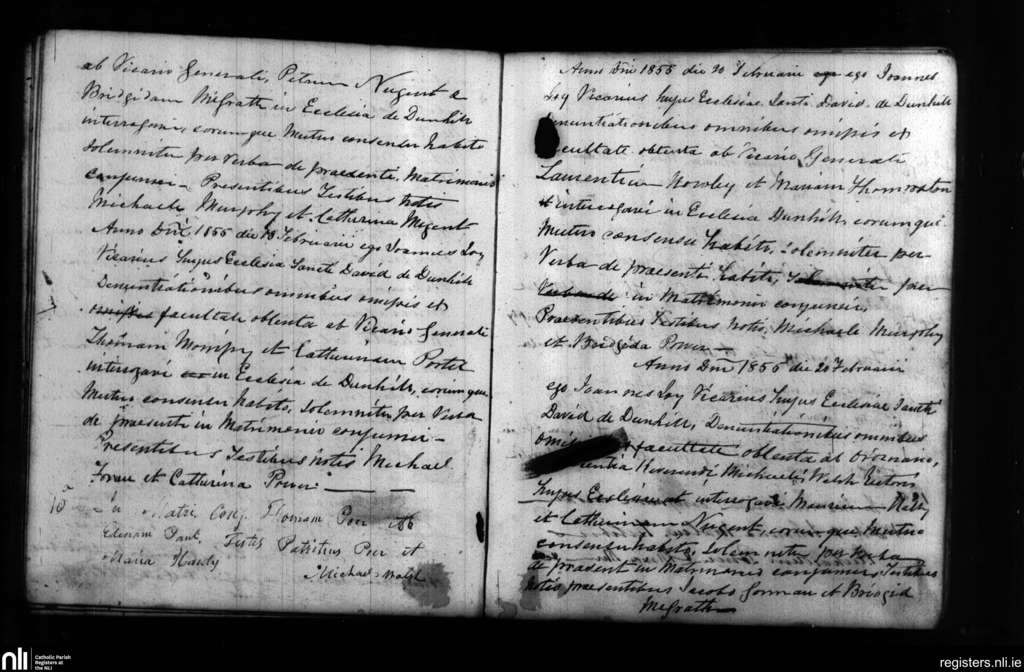 ab Vicario Generali, Petrum Nugent a
Bridgidam McGrath in Ecclesia de Dunhill
interrogavi, corumque Mutuo consensu habito
solemniter per verba de praesente, Matrimonio
conjunxi - Presentibus Testibus notis
Michaele Murphy et Catherina Nugent
Anno Dni 1855 die 19 Februarii ego Joannes Loy
Vicarius hujus Ecclesia Sancti David de Dunhill
Denuntiationibus omnibus omissis et
facultate obtenta ab Vicario Generali
Thomam et Catherinam Power
interrogavi in Ecclesia de Dunhill, corumque
Mutuo consensu habito, solemniter per Verba
de praesente in Matrimonio conjunxi -
Presentibus Testibus notis Michael
et Catherina Power
10a in Matri Conj. Thomam Poer et
Elenam Testes Patritius Poer et
Maria Hardy
Michael Walsh
Anno Dni 1855 die 20 Februarii ego Joannes
Loy Vicarius hujus Ecclesiae Santi David de Dunhill
Denuntiationibus omnibus omissis et
facultate obtenta ab Vicario Generali
Laurentium et Mariam
interrogavi in Ecclesia Dunhill, corumque
Mutuo consensu habito, solemniter per
Verba de praesenti habito, per
in Matrimonio conjunxi
Praesentibus Testibus notis, Michaele Murphy
et Bridgida Power -
Anno Dni 1855 die 20 Februarii
ego Joannes Loy Vicarius hujus Ecclesiae Santi
David de Dunhill, Denuntiationibus omnibus
facultate obtenta ab
Reverendi Michaelis Welsh Rectoris
hujus Ecclesiae et interrogavi
et Catherinam Nugent, corumque Mutuo
consensu habito, solemniter per Verba
de praesent in Matrimonio conjunxi Testibus
notis praesentibus Jacobo Gorman et Bridgid
McGrath
nli
Catholic Parish
Registers at
the NLI
registers.nli.ie